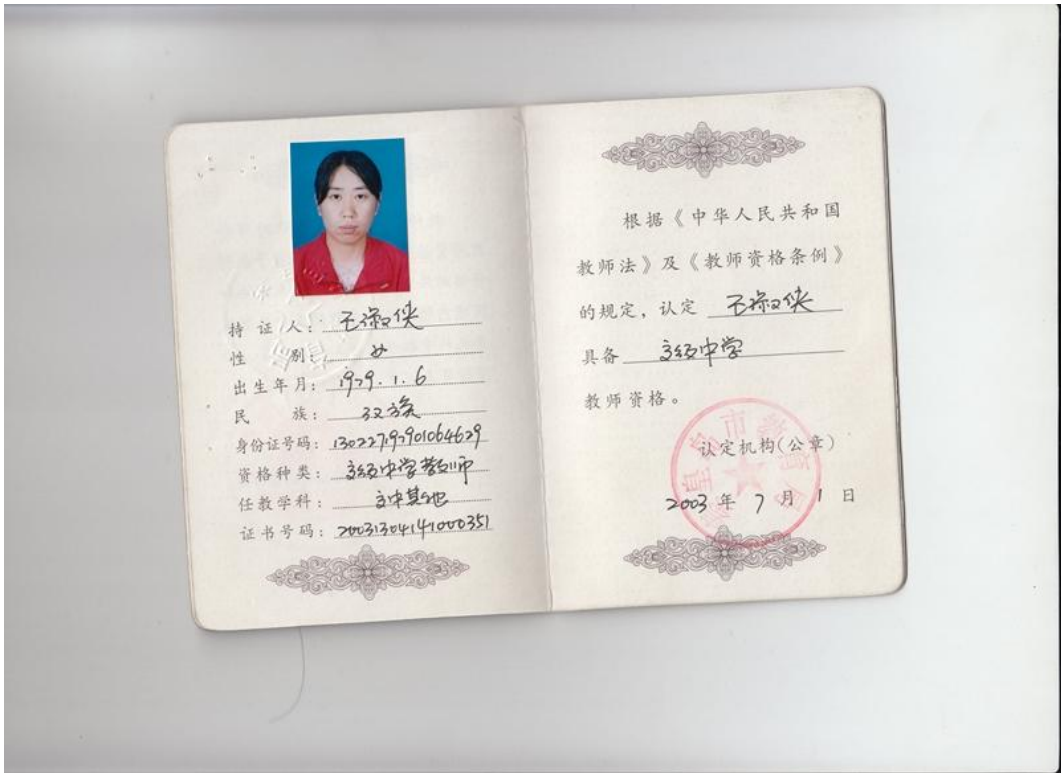 持证人：王淑侠
性别：女
出生年月：1979.1.6
民族：汉族
身份证号码：130227197901064629
资格种类：高级中学教师
任教学科：高中其他
证书号码：20031304141000351
根据《中华人民共和国
教师法》及《教师资格条例》
的规定，认定 王淑侠
具备 高级中学
教师资格。
认定机构(公章)
2003年7月1日
秦皇岛市教育局